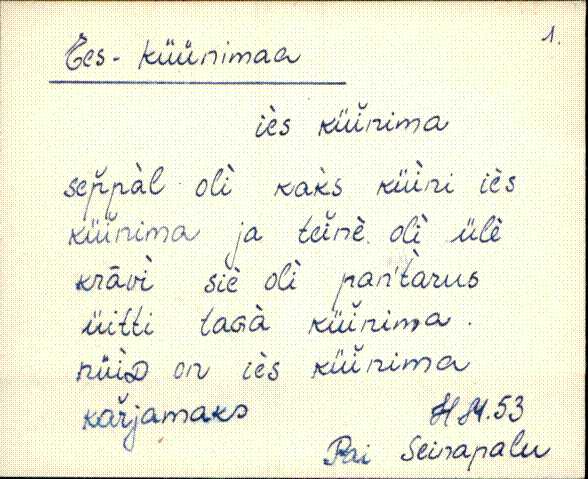 1.
Ees-küünimaa
iès küünima
seppàl olì kaks küüni iès
küünima ja teìnè olì ülè
krāvì siè olì pan'tàrus
üitti taGà küünima.
nüìD on iès küünima
kařjamaks
H M. 53
Pai Seinapalu